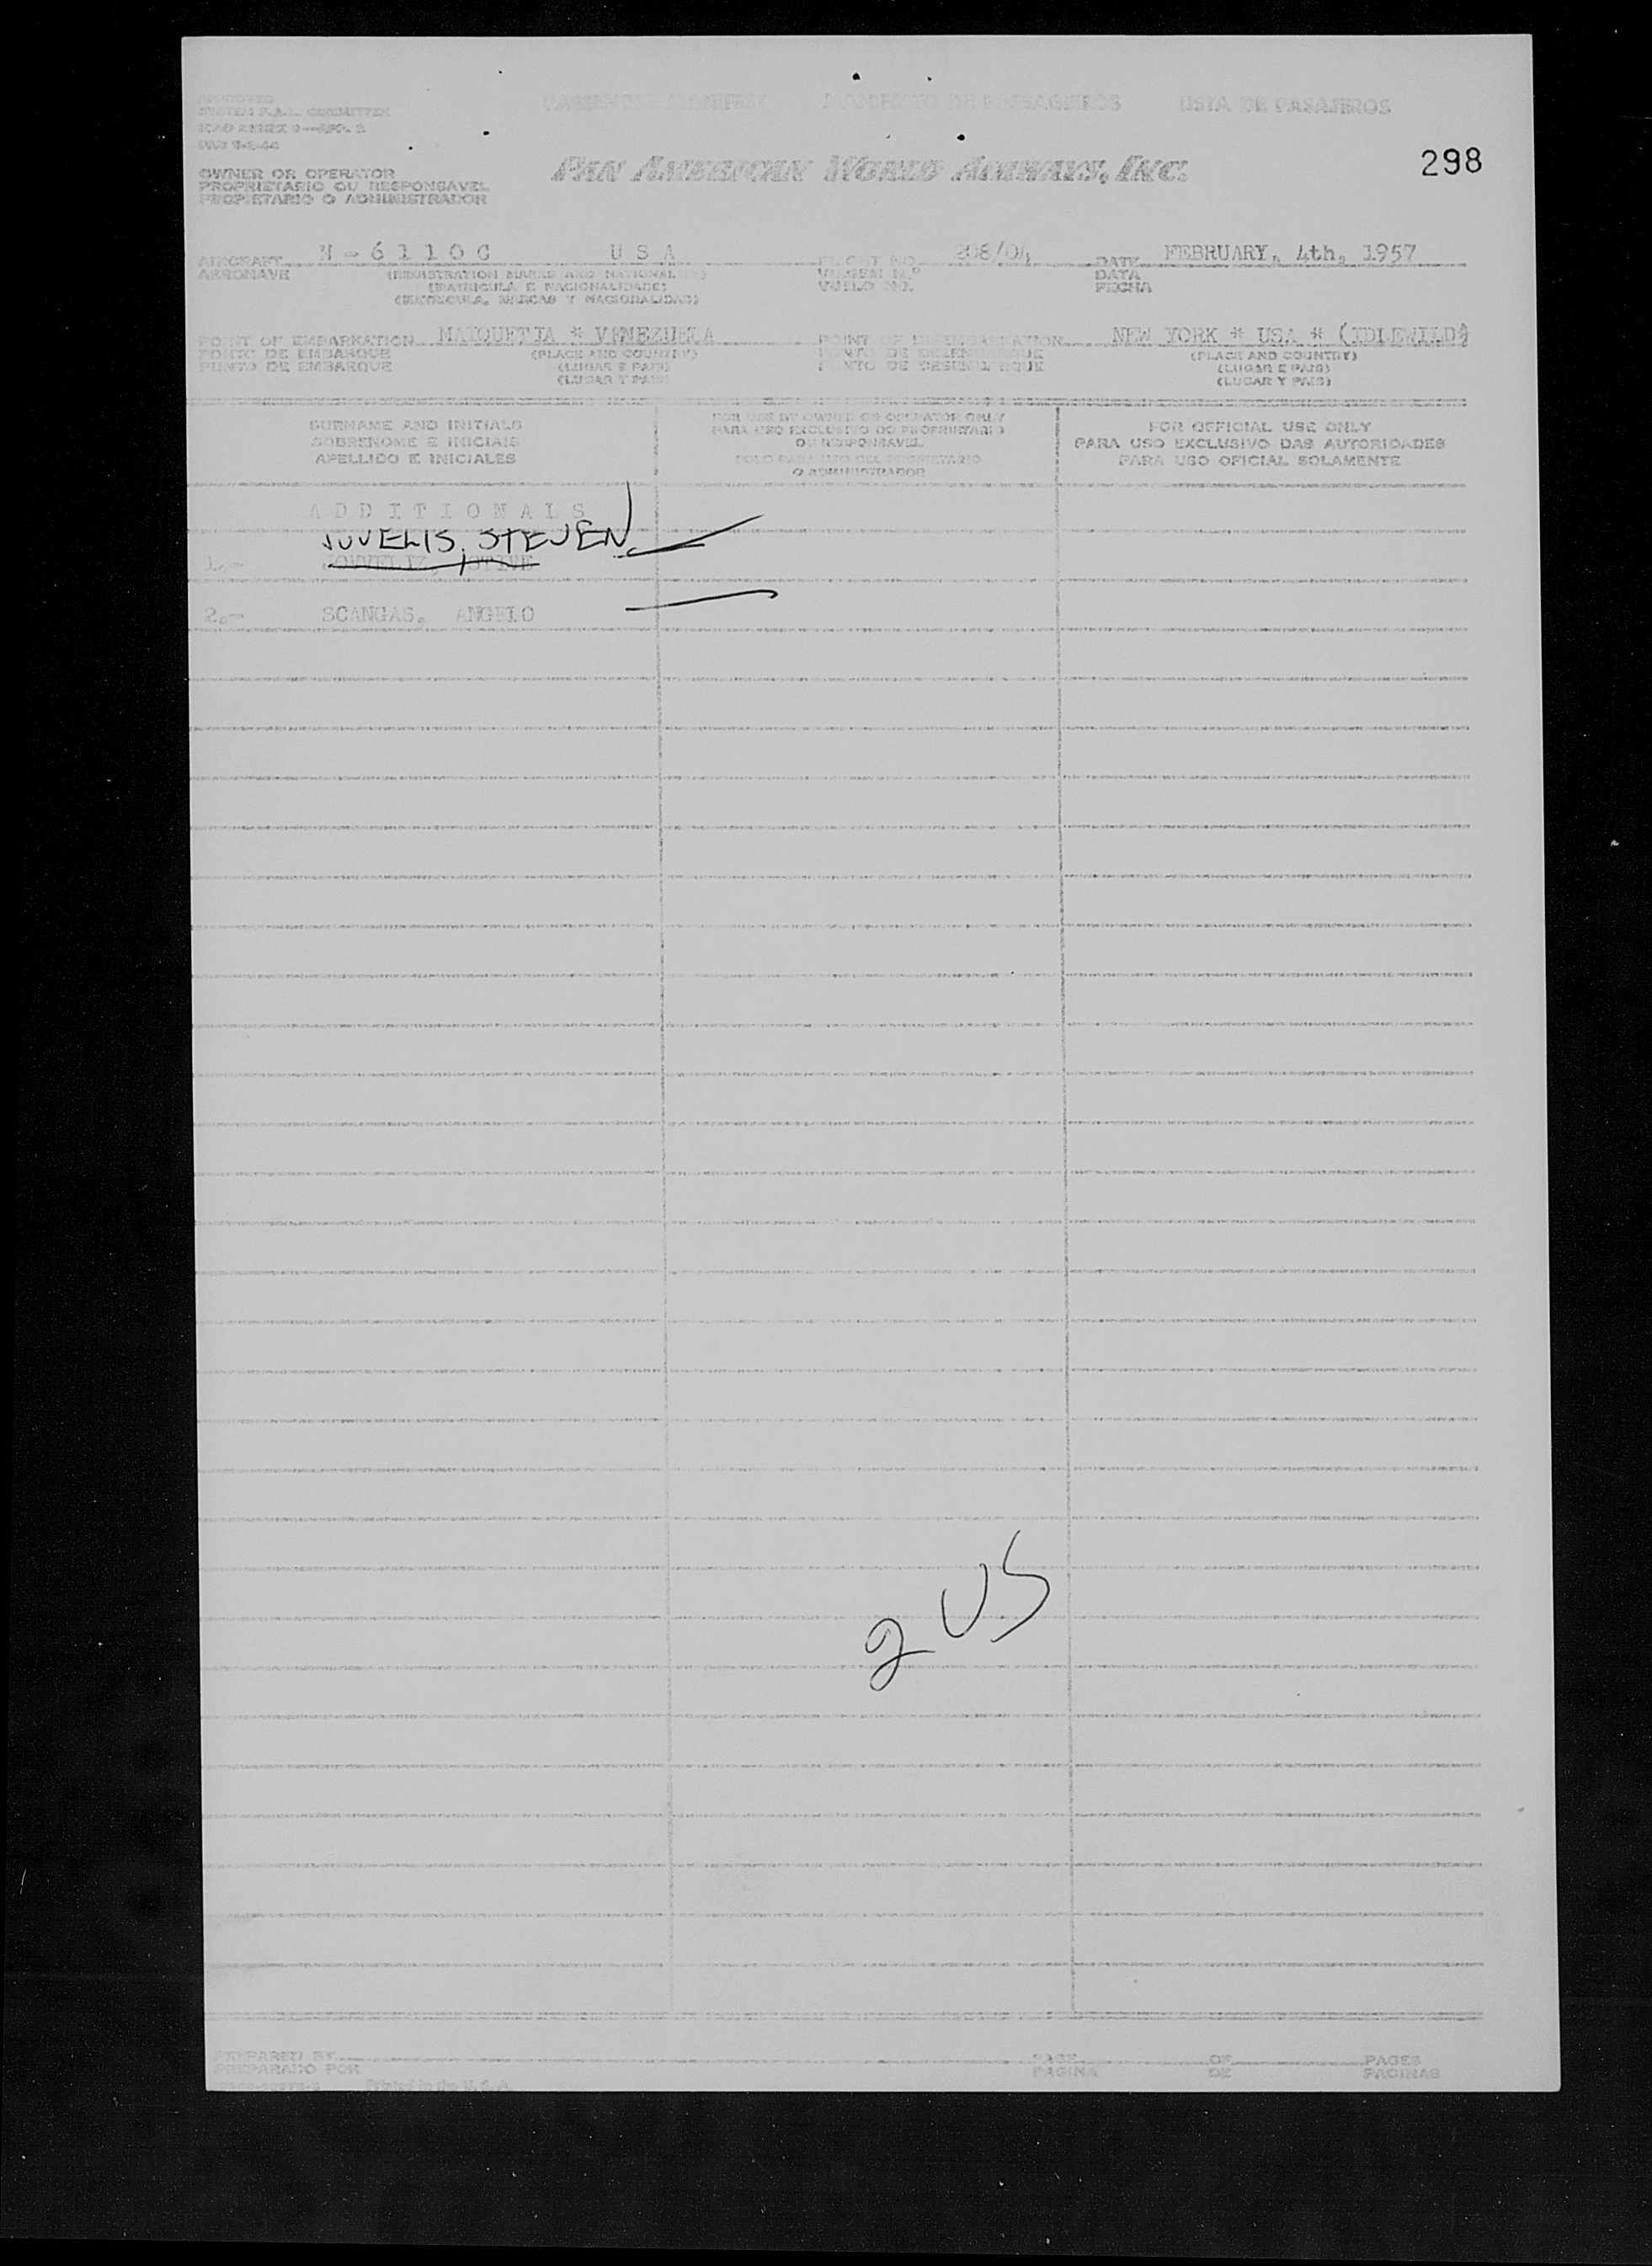 PASSENGER MANIFEST MANIFESTO DE PASSAGEIROS LISTA DE PASAJEROS
APPROVED
SYSTEM F.A.L. COMMITTEE
ICAO ANNEX 9—APP. 2
298
PAN AMERICAN WORLD AIRWAYS, INC.
OWNER OR OPERATOR
PROPRIETARIO OU RESPONSAVEL
PROPIETARIO O ADMINISTRADOR
AIRCRAFT N - 6 1 1 0 C U S A FLIGHT NO. 208/04 DATE FEBRUARY, 4th, 1957
AERONAVE (REGISTRATION MARKS AND NATIONALITY) VIAGEM N.º DATA
(MATRICULA E NACIONALIDADE) VUELO NO. FECHA
(MATRICULA, MARCAS Y NACIONALIDAD)
POINT OF EMBARKATION MAIQUETIA * VENEZUELA POINT OF DISEMBARKATION NEW YORK * USA * (IDLEWILD)
PONTO DE EMBARQUE (PLACE AND COUNTRY) PONTO DE DESEMBARQUE (PLACE AND COUNTRY)
PUNTO DE EMBARQUE (LUGAR E PAIS) PUNTO DE DESEMBARQUE (LUGAR E PAIS)
(LUGAR Y PAIS) (LUGAR Y PAIS)
SURNAME AND INITIALS FOR USE BY OWNER OR OPERATOR ONLY FOR OFFICIAL USE ONLY
SOBRENOME E INICIAIS PARA USO EXCLUSIVO DO PROPRIETARIO PARA USO EXCLUSIVO DAS AUTORIDADES
APELLIDO E INICIALES OU RESPONSAVEL PARA USO OFICIAL SOLAMENTE
SOLO PARA USO DEL PROPIETARIO
O ADMINISTRADOR
A D D I T I O N A L S
JUVELIS, STEVEN
1.-
2.- SCANGAS, ANGELO
2 US
PREPARED BY PAGE OF PAGES
PREPARADO POR PAGINA DE PAGINAS
Printed in the U. S. A.